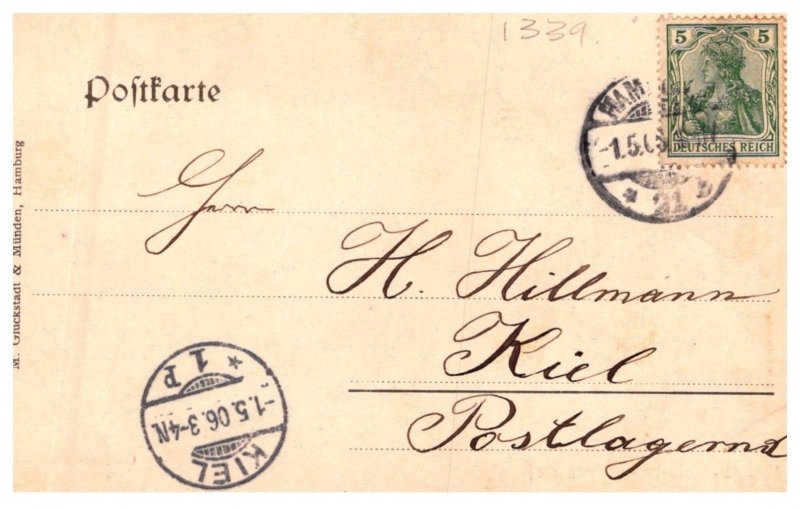 1339.
5 5
DEUTSCHES REICH
HAM
-1.5.0
* 2L
Poſtkarte
Herrn
H. Hillmann
Kiel
Postlagernd
M. Glückstadt & Münden, Hamburg
* 1 P
-1.5.06.3-4N
KIEL